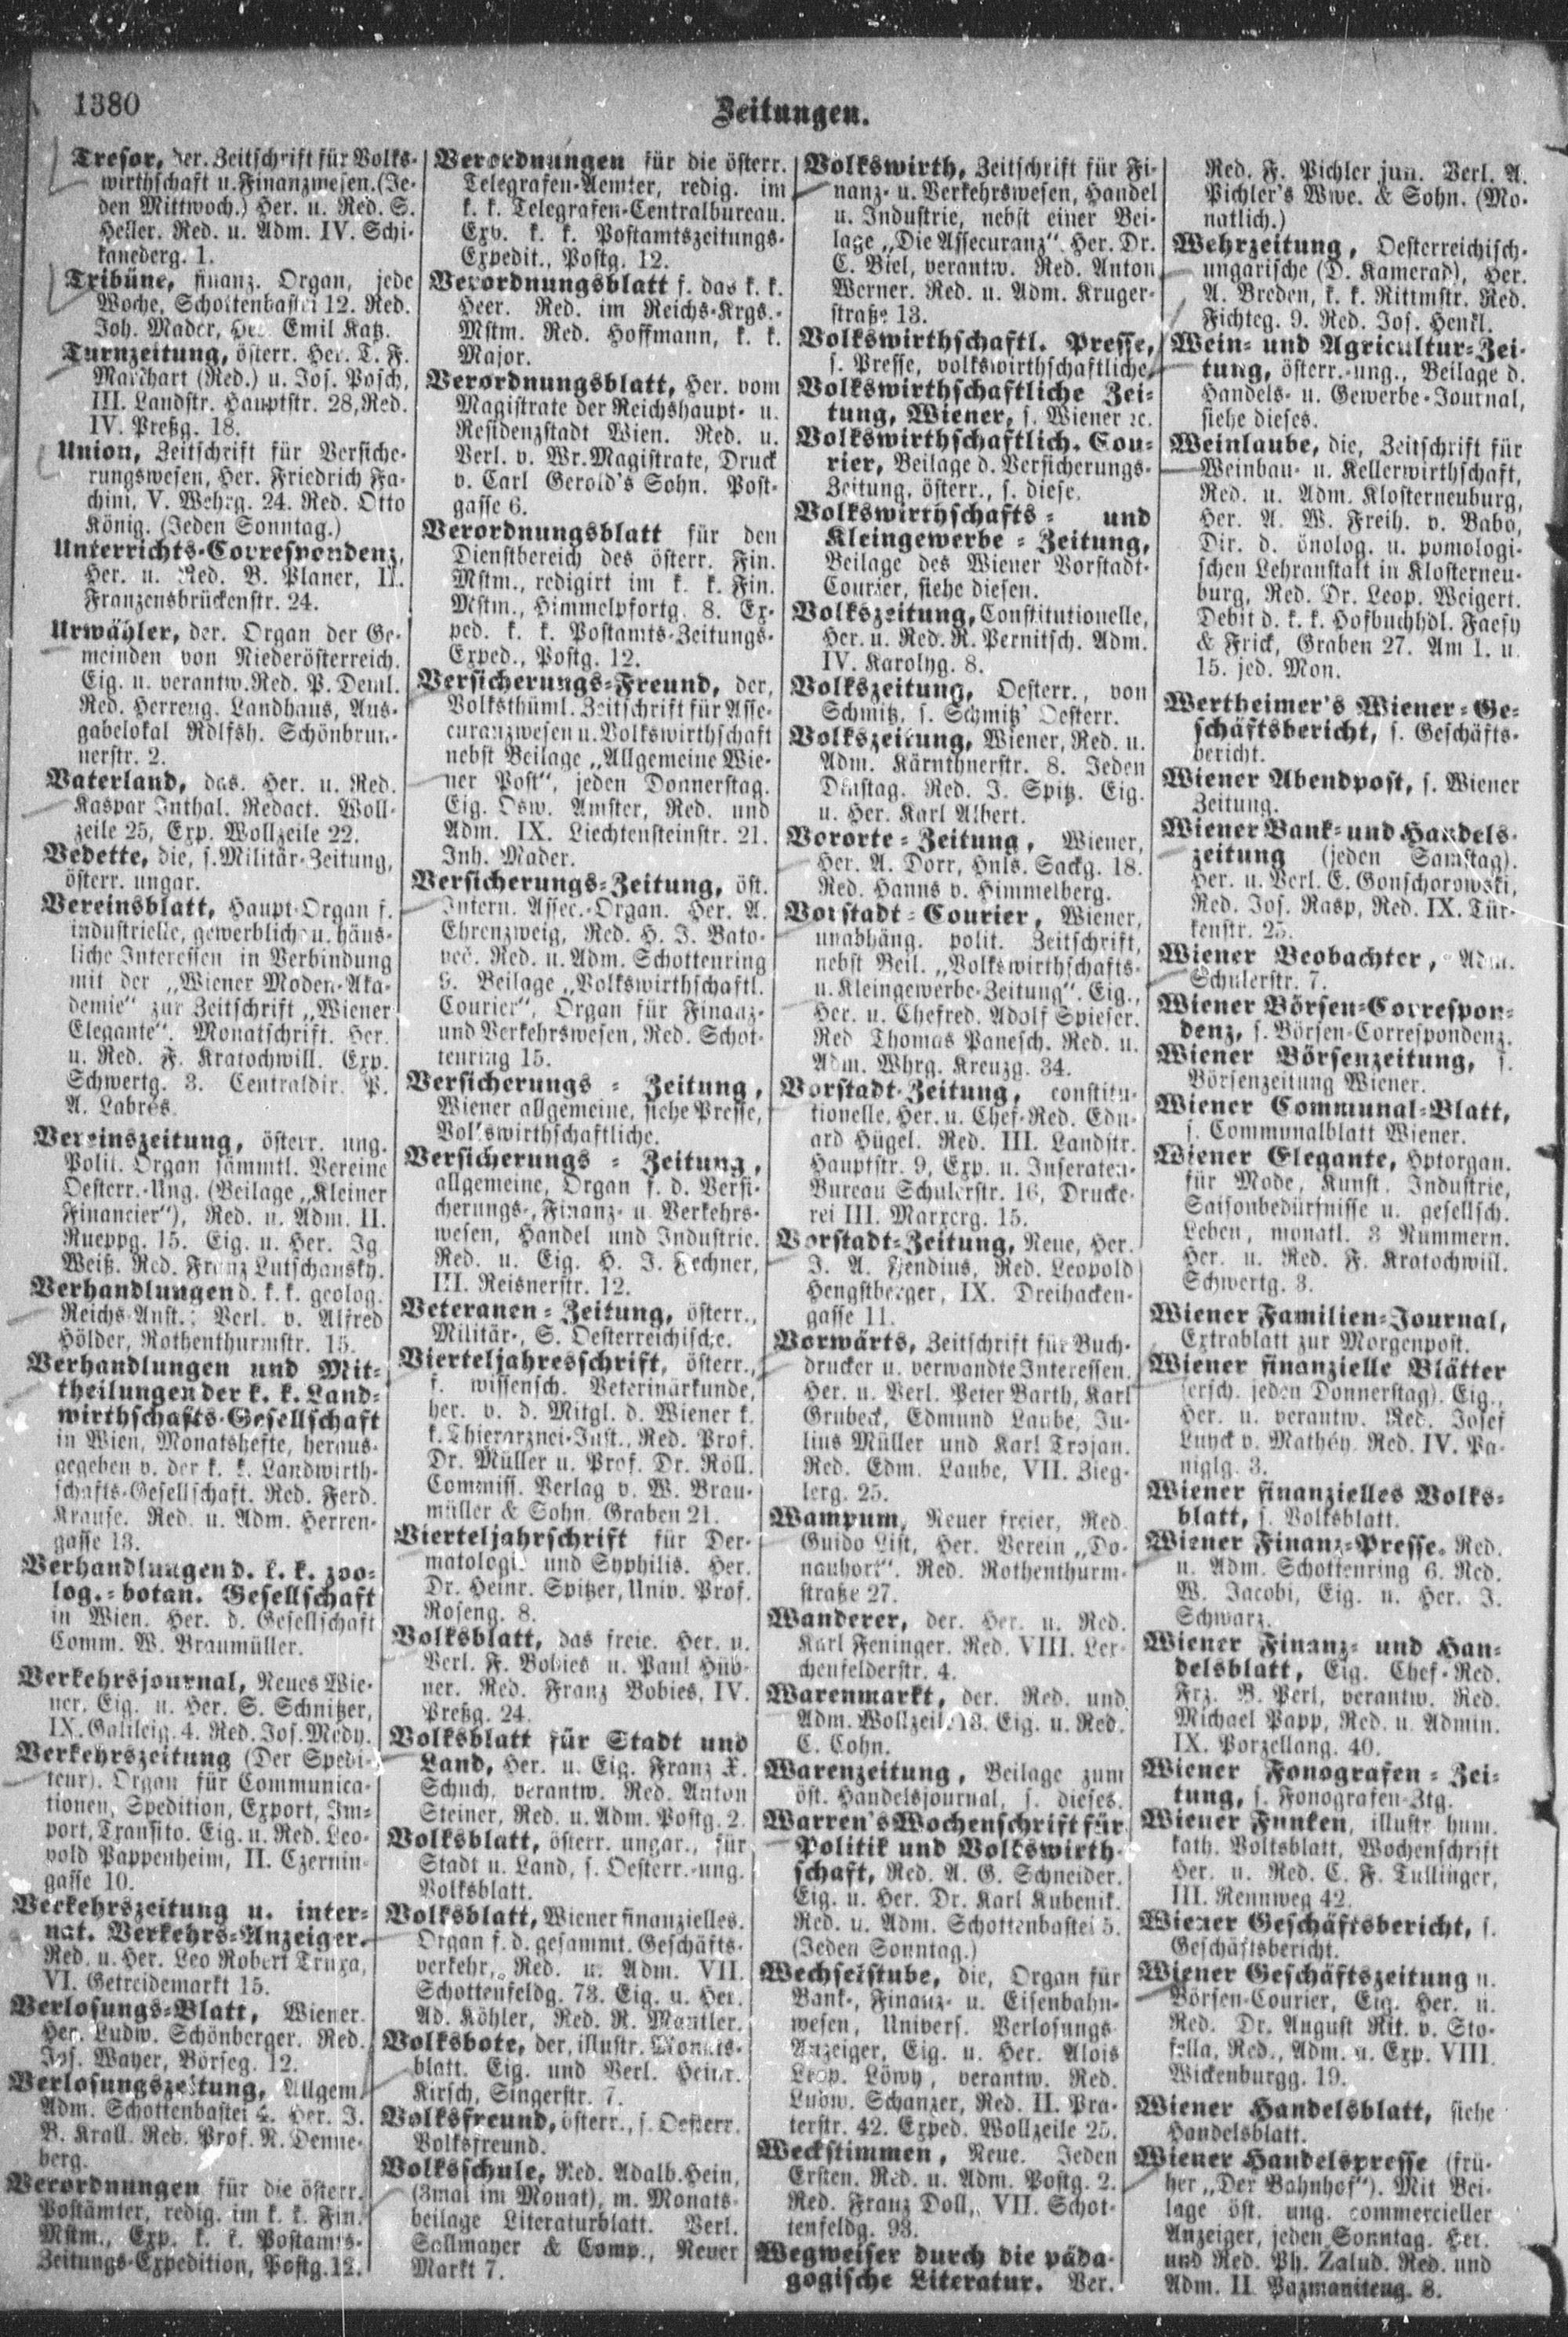 1380
Zeitungen.
Tresor, der. Zeitschrift für Volks-
wirthschaft u. Finanzwesen. (Je-
den Mittwoch.) Her. u. Red. S.
Heller. Red. u. Adm. IV. Schi-
kanederg. 1.
Tribüne, finanz. Organ, jede
Woche, Schottenbastei 12. Red.
Joh. Mader, Her. Emil Katz.
Turnzeitung, österr. Her. T. F.
Marchart (Red.) u. Jos. Posch,
III. Landstr. Hauptstr. 28, Red.
IV. Preßg. 18.
Union, Zeitschrift für Versiche-
rungswesen, Her. Friedrich Fa-
chini, V. Wehrg. 24. Red. Otto
König. (Jeden Sonntag.)
Unterrichts-Correspondenz,
Her. u. Red. B. Planer, II.
Franzensbrückenstr. 24.
Urwähler, der. Organ der Ge-
meinden von Niederösterreich.
Eig. u. verantw. Red. P. Deml.
Red. Herreng. Landhaus, Aus-
gabelokal Rdlfsh. Schönbrun-
nerstr. 2.
Vaterland, das. Her. u. Red.
Kaspar Inthal. Redact. Woll-
zeile 25, Exp. Wollzeile 22.
Vedette, die, s. Militär-Zeitung,
österr. ungar.
Vereinsblatt, Haupt-Organ f.
industrielle, gewerbliche u. häus-
liche Interessen in Verbindung
mit der „Wiener Moden-Aka-
demie“ zur Zeitschrift „Wiener
Elegante“. Monatschrift. Her.
u. Red. F. Kratochwill. Exp.
Schwertg. 3. Centraldir. P.
A. Labrés.
Vereinszeitung, österr. ung.
Polit. Organ sämmtl. Vereine
Oesterr.-Ung. (Beilage „Kleiner
Financier“), Red. u. Adm. II.
Rueppg. 15. Eig. u. Her. Ig
Weiß. Red. Franz Lutschansky.
Verhandlungen d. k. k. geolog.
Reichs-Anst.; Verl. v. Alfred
Hölder, Rothenthurmstr. 15.
Verhandlungen und Mit-
theilungen der k. k. Land-
wirthschafts-Gesellschaft
in Wien, Monatshefte, heraus-
gegeben v. der k. k. Landwirth-
schafts-Gesellschaft. Red. Ferd.
Krause. Red. u. Adm. Herren-
gasse 13.
Verhandlungen d. k. k. zoo-
log.-botan. Gesellschaft
in Wien. Her. d. Gesellschaft
Comm. W. Braumüller.
Verkehrsjournal, Neues Wie-
ner. Eig. u. Her. S. Schnitzer,
IX. Galileig. 4. Red. Jos. Medy.
Verkehrszeitung (Der Spedi-
teur). Organ für Communica-
tionen, Spedition, Export, Im-
port, Transito. Eig. u. Red. Leo-
pold Pappenheim, II. Czernin-
gasse 10.
Verkehrszeitung u. inter-
nat. Verkehrs-Anzeiger.
Red. u. Her. Leo Robert Truxa,
VI. Getreidemarkt 15.
Verlosungs-Blatt, Wiener.
Her. Ludw. Schönberger. Red.
Jos. Wayer, Börseg. 12.
Verlosungszeitung, Allgem.
Adm. Schottenbastei 4. Her. J.
B. Krall. Red. Prof. R. Denne-
berg.
Verordnungen für die österr.
Postämter, redig. im k. k. Fin.
Mstm., Exp. k. k. Postamts-
Zeitungs-Expedition, Postg. 12.
Verordnungen für die österr.
Telegrafen-Aemter, redig. im
k. k. Telegrafen-Centralbureau.
Exp. k. k. Postamtszeitungs-
Expedit., Postg. 12.
Verordnungsblatt f. das k. k.
Heer. Red. im Reichs-Krgs.-
Mstm. Red. Hoffmann, k. k.
Major.
Verordnungsblatt, Her. vom
Magistrate der Reichshaupt- u.
Residenzstadt Wien. Red. u.
Verl. v. Wr. Magistrate, Druck
v. Carl Gerold's Sohn. Post-
gasse 6.
Verordnungsblatt für den
Dienstbereich des österr. Fin.
Mstm., redigirt im k. k. Fin.
Mstm., Himmelpfortg. 8. Ex-
ped. k. k. Postamts-Zeitungs-
Exped., Postg. 12.
Versicherungs-Freund, der,
Volksthüml. Zeitschrift für Asse-
curanzwesen u. Volkswirthschaft
nebst Beilage „Allgemeine Wie-
ner Post“, jeden Donnerstag.
Eig. Osw. Amster, Red. und
Adm. IX. Liechtensteinstr. 21.
Inh. Mader.
Versicherungs-Zeitung, öst.
Intern. Assec.-Organ. Her. A.
Ehrenzweig, Red. H. J. Bato-
več. Red. u. Adm. Schottenring
9. Beilage „Volkswirthschaftl.
Courier“, Organ für Finanz-
und Verkehrswesen, Red. Schot-
tenring 15.
Versicherungs-Zeitung,
Wiener allgemeine, siehe Presse,
Volkswirthschaftliche.
Versicherungs-Zeitung,
allgemeine, Organ f. d. Versi-
cherungs-, Finanz- u. Verkehrs-
wesen, Handel und Industrie.
Red. u. Eig. H. J. Lechner,
III. Reisnerstr. 12.
Veteranen-Zeitung, österr.,
Militär-, S. Oesterreichische.
Vierteljahresschrift, österr.,
f. wissensch. Veterinärkunde,
her. v. d. Mitgl. d. Wiener k.
k. Thierarznei-Inst., Red. Prof.
Dr. Müller u. Prof. Dr. Röll.
Commiss. Verlag v. W. Brau-
müller & Sohn. Graben 21.
Vierteljahrschrift für Der-
matologie und Syphilis. Her.
Dr. Heinr. Spitzer, Univ. Prof.
Roseng. 8.
Volksblatt, das freie. Her. u.
Verl. F. Bobies u. Paul Hüb-
ner. Red. Franz Bobies, IV.
Preßg. 24.
Volksblatt für Stadt und
Land, Her. u. Eig. Franz X.
Schuch, verantw. Red. Anton
Steiner, Red. u. Adm. Postg. 2.
Volksblatt, österr. ungar., für
Stadt u. Land, s. Oesterr.-ung.
Volksblatt.
Volksblatt, Wiener finanzielles.
Organ f. d. gesammt. Geschäfts-
verkehr, Red. u. Adm. VII.
Schottenfeldg. 73. Eig. u. Her.
Ad. Köhler, Red. R. Mantler.
Volksbote, der, illustr. Monats-
blatt. Eig. und Verl. Heinr.
Kirsch, Singerstr. 7.
Volksfreund, österr., s. Oesterr.
Volksfreund.
Volksschule, Red. Adalb. Hein,
(3mal im Monat), m. Monats-
beilage Literaturblatt. Verl.
Sallmayer & Comp., Neuer
Markt 7.
Volkswirth, Zeitschrift für Fi-
nanz- u. Verkehrswesen, Handel
u. Industrie, nebst einer Bei-
lage „Die Assecuranz“. Her. Dr.
C. Biel, verantw. Red. Anton
Werner. Red. u. Adm. Kruger-
straße 13.
Volkswirthschaftl. Presse,
s. Presse, volkswirthschaftliche.
Volkswirthschaftliche Zei-
tung, Wiener, s. Wiener ꝛc.
Volkswirthschaftlich. Cou-
rier, Beilage d. Versicherungs-
Zeitung, österr., s. diese.
Volkswirthschafts- und
Kleingewerbe-Zeitung,
Beilage des Wiener Vorstadt-
Courier, siehe diesen.
Volkszeitung, Constitutionelle,
Her. u. Red. R. Pernitsch. Adm.
IV. Karolyg. 8.
Volkszeitung, Oesterr., von
Schmitz, s. Schmitz' Oesterr.
Volkszeitung, Wiener, Red. u.
Adm. Kärnthnerstr. 8. Jeden
Dinstag. Red. J. Spitz. Eig.
u. Her. Karl Albert.
Vororte-Zeitung, Wiener,
Her. A. Dorr, Hnls. Sackg. 18.
Red. Hanns v. Himmelberg.
Vorstadt-Courier, Wiener,
unabhäng. polit. Zeitschrift,
nebst Beil. „Volkswirthschafts-
u. Kleingewerbe-Zeitung“. Eig.,
Her. u. Chefred. Adolf Spieser.
Red Thomas Panesch. Red. u.
Adm. Whrg. Kreuzg. 34.
Vorstadt-Zeitung, constitu-
tionelle, Her. u. Chef-Red. Edu-
ard Hügel. Red. III. Landstr.
Hauptstr. 9, Exp. u. Inseraten-
Bureau Schulerstr. 16, Drucke-
rei III. Marxerg. 15.
Vorstadt-Zeitung, Neue, Her.
J. A. Hendius, Red. Leopold
Hengstberger, IX. Dreihacken-
gasse 11.
Vorwärts, Zeitschrift für Buch-
drucker u. verwandte Interessen.
Her. u. Verl. Peter Barth, Karl
Grubeck, Edmund Laube, Ju-
lius Müller und Karl Trojan.
Red. Edm. Laube, VII. Zieg-
lerg. 25.
Wampum, Neuer freier, Red.
Guido List, Her. Verein „Do-
nauhort“. Red. Rothenthurm-
straße 27.
Wanderer, der. Her. u. Red.
Karl Feninger. Red. VIII. Ler-
chenfelderstr. 4.
Warenmarkt, der. Red. und
Adm. Wollzeile 13. Eig. u. Red.
C. Cohn.
Warenzeitung, Beilage zum
öst. Handelsjournal, s. dieses.
Warren's Wochenschrift für
Politik und Volkswirth-
schaft, Red. A. G. Schneider.
Eig. u. Her. Dr. Karl Kubenik.
Red. u. Adm. Schottenbastei 5.
(Jeden Sonntag.)
Wechselstube, die, Organ für
Bank-, Finanz- u. Eisenbahn-
wesen, Univers. Verlosungs-
Anzeiger, Eig. u. Her. Alois
Leop. Löwy, verantw. Red.
Ludw. Schanzer, Red. II. Pra-
terstr. 42. Exped. Wollzeile 25.
Weckstimmen, Neue. Jeden
Ersten. Red. u. Adm. Postg. 2.
Red. Franz Doll, VII. Schot-
tenfeldg. 93.
Wegweiser durch die päda-
gogische Literatur. Ver.
Red. F. Pichler jun. Verl. A.
Pichler's Wwe. & Sohn. (Mo-
natlich.)
Wehrzeitung, Oesterreichisch-
ungarische (D. Kamerad), Her.
A. Breden, k. k. Rittmstr. Red.
Fichteg. 9. Red. Jos. Henkl.
Wein- und Agricultur-Zei-
tung, österr.-ung., Beilage d.
Handels- u. Gewerbe-Journal,
siehe dieses.
Weinlaube, die, Zeitschrift für
Weinbau- u. Kellerwirthschaft,
Red. u. Adm. Klosterneuburg,
Her. A. W. Freih. v. Babo,
Dir. d. önolog. u. pomologi-
schen Lehranstalt in Klosterneu-
burg, Red. Dr. Leop. Weigert.
Debit d. k. k. Hofbuchhdl. Faesy
& Frick, Graben 27. Am 1. u.
15. jed. Mon.
Wertheimer's Wiener-Ge-
schäftsbericht, s. Geschäfts-
bericht.
Wiener Abendpost, s. Wiener
Zeitung.
Wiener Bank- und Handels-
zeitung (jeden Samstag).
Her. u. Verl. E. Gonschorowski,
Red. Jos. Rasp, Red. IX. Tür-
kenstr. 25.
Wiener Beobachter, Adm.
Schulerstr. 7.
Wiener Börsen-Correspon-
denz, s. Börsen-Correspondenz.
Wiener Börsenzeitung, s.
Börsenzeitung Wiener.
Wiener Communal-Blatt,
s. Communalblatt Wiener.
Wiener Elegante, Hptorgan.
für Mode, Kunst, Industrie,
Saisonbedürfnisse u. gesellsch.
Leben, monatl. 3 Nummern.
Her. u. Red. F. Kratochwill.
Schwertg. 3.
Wiener Familien-Journal,
Extrablatt zur Morgenpost.
Wiener finanzielle Blätter
(ersch. jeden Donnerstag). Eig.,
Her. u. verantw. Red. Josef
Luyck v. Mathéy. Red. IV. Pa-
niglg. 3.
Wiener finanzielles Volks-
blatt, s. Volksblatt.
Wiener Finanz-Presse. Red.
u. Adm. Schottenring 6. Red.
W. Jacobi, Eig. u. Her. J.
Schwarz.
Wiener Finanz- und Han-
delsblatt, Eig. Chef-Red.
Frz. B. Perl, verantw. Red.
Michael Papp, Red. u. Admin.
IX. Porzellang. 40.
Wiener Fonografen-Zei-
tung, s. Fonografen-Ztg.
Wiener Funken, illustr. hum.
kath. Volksblatt, Wochenschrift
Her. u. Red. C. F. Tullinger,
III. Rennweg 42.
Wiener Geschäftsbericht, s.
Geschäftsbericht.
Wiener Geschäftszeitung u.
Börsen-Courier, Eig. Her. u.
Red. Dr. August Rit. v. Sto-
fella, Red., Adm. u. Exp. VIII.
Wickenburgg. 19.
Wiener Handelsblatt, siehe
Handelsblatt.
Wiener Handelspresse (frü-
her „Der Bahnhof“). Mit Bei-
lage öst. ung. commercieller
Anzeiger, jeden Sonntag. Her.
und Red. Ph. Zalud. Red. und
Adm. II. Pazmaniteng. 8.